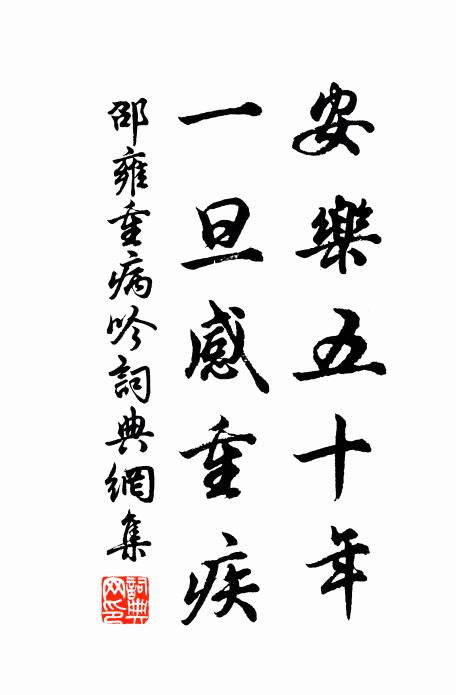 安樂五十年
一旦感重疾
邵雍重病吟詞典網集
詞典网印